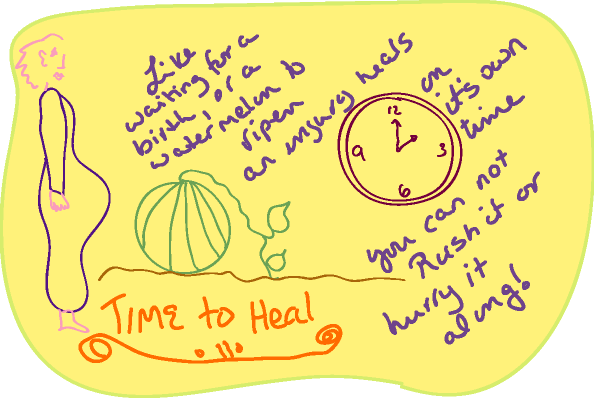 Like
waiting for a
birth, or a
watermelon to
ripen
an injury heals
on
it's own
time
12
9
3
6
you can not
Rush it or
hurry it
along!
TIME to Heal